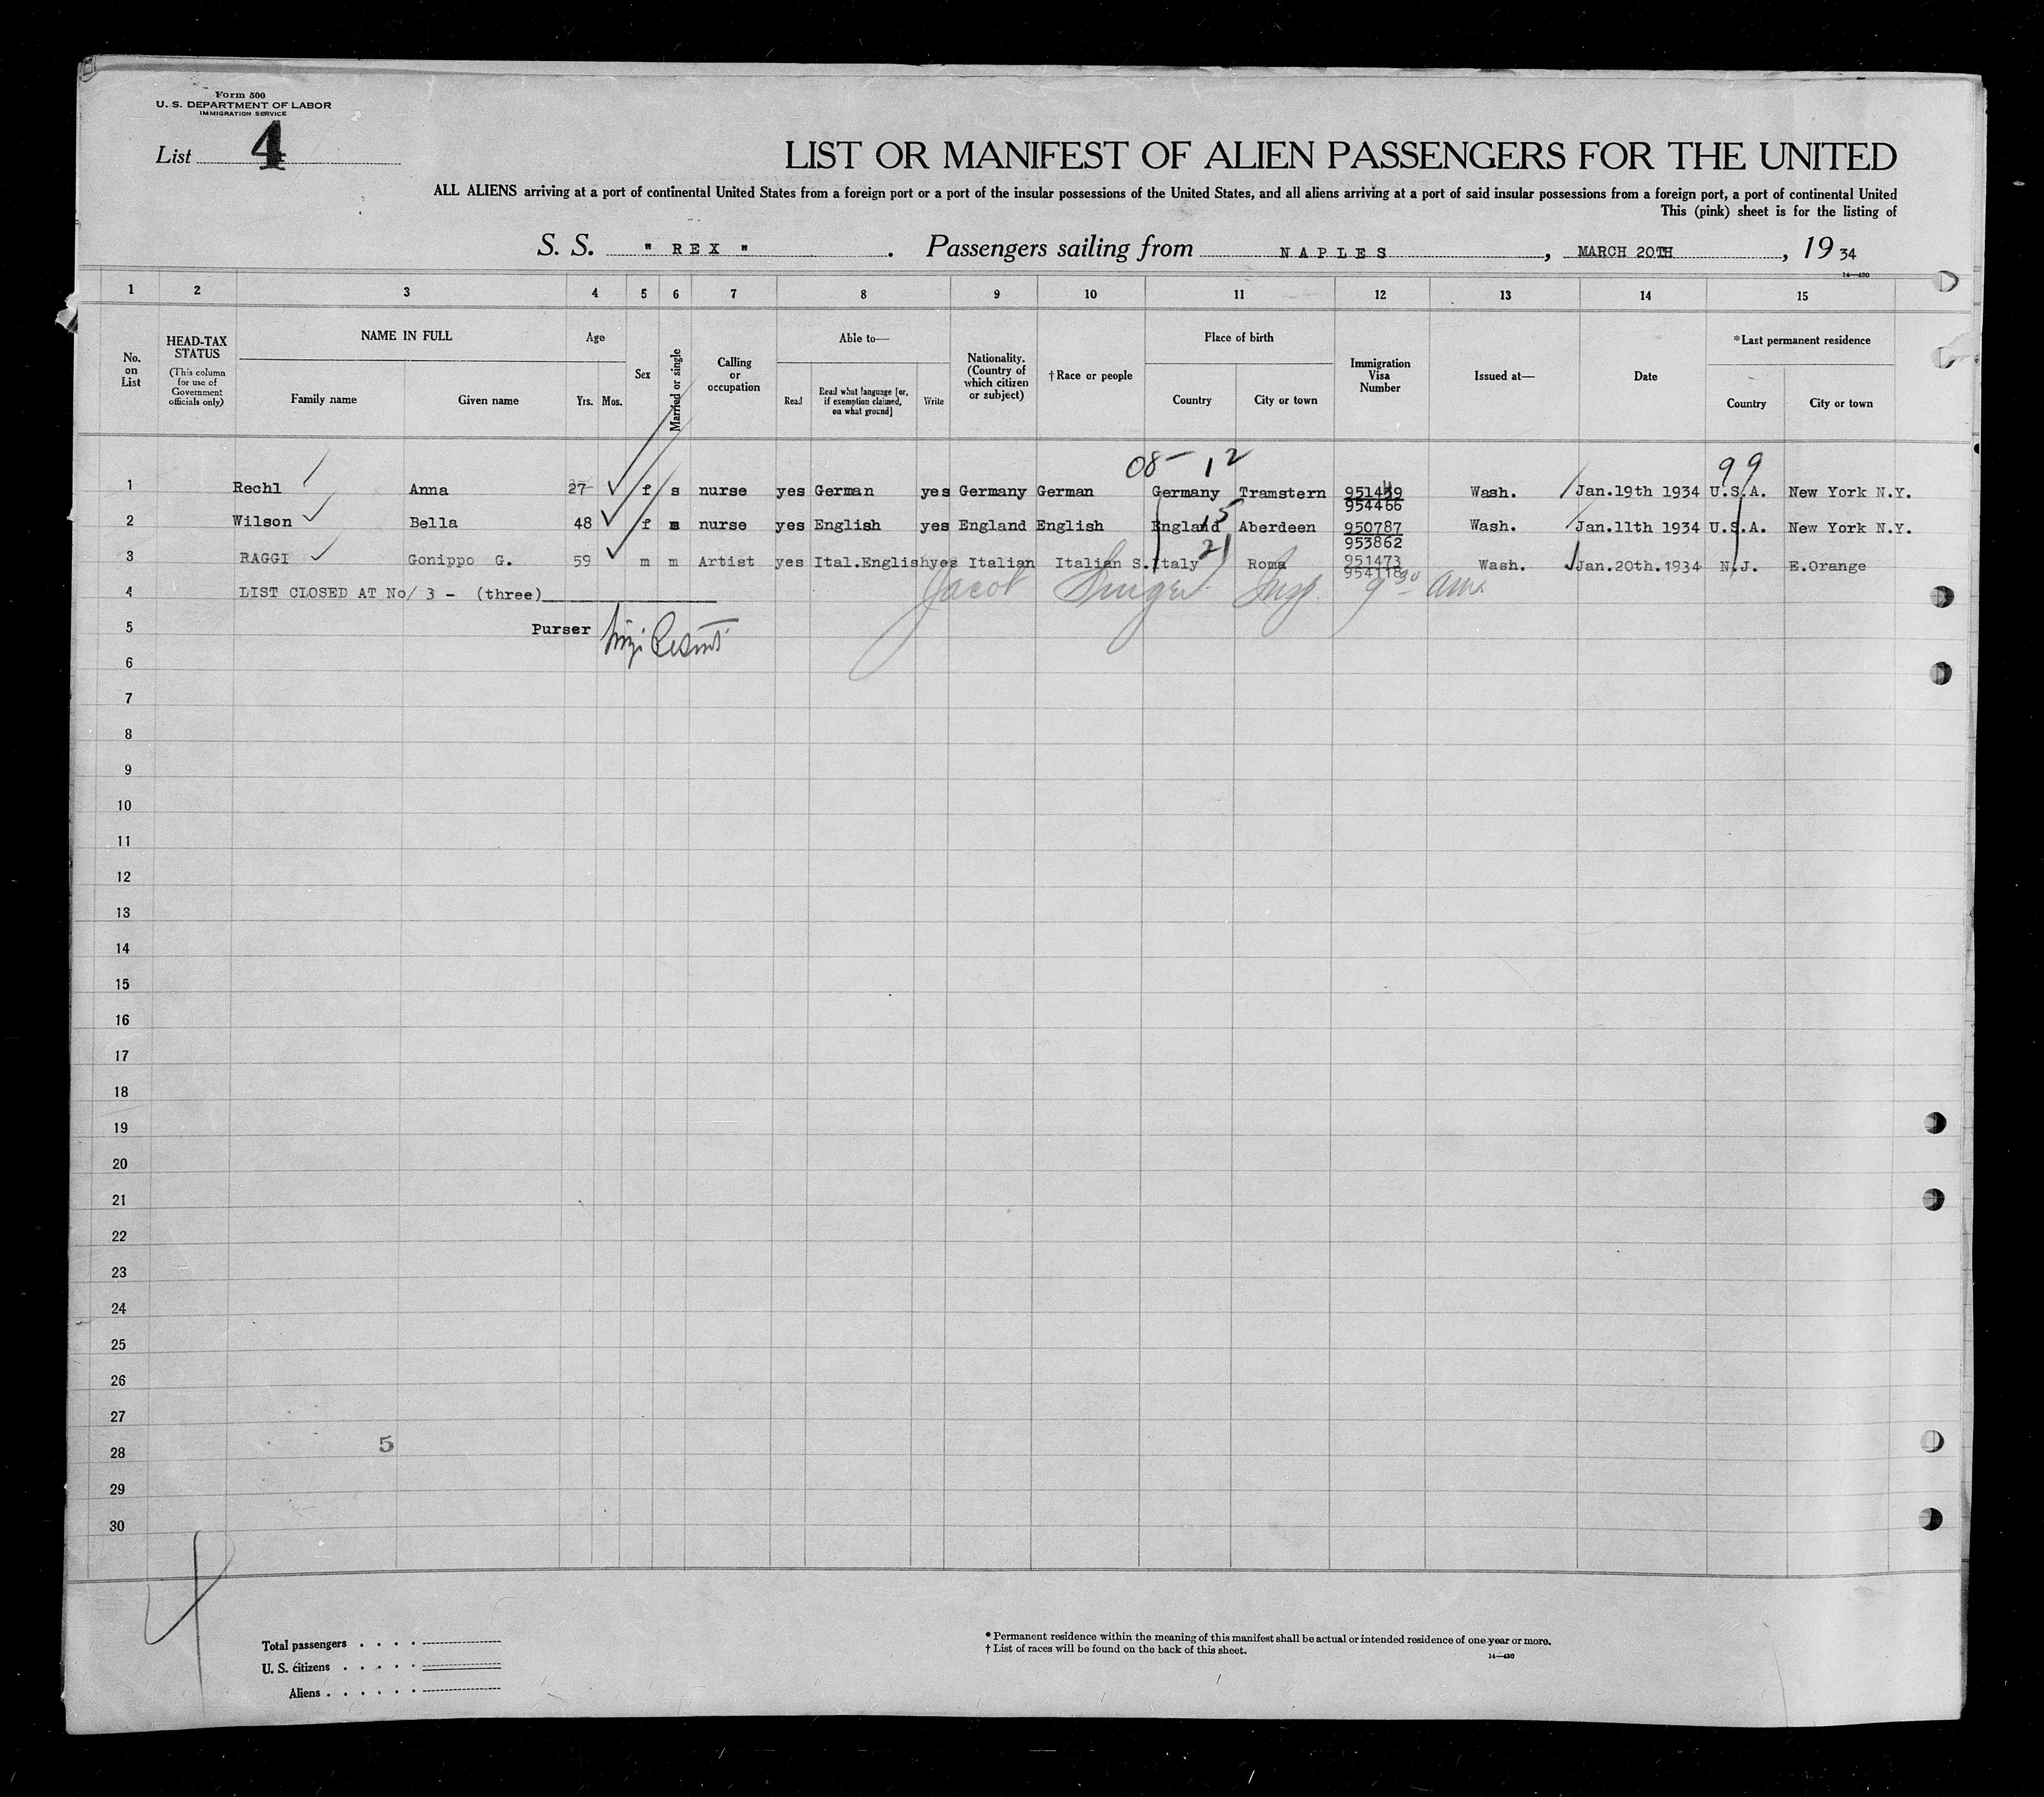 Form 500
U. S. DEPARTMENT OF LABOR
IMMIGRATION SERVICE
List 4
LIST OR MANIFEST OF ALIEN PASSENGERS FOR THE UNITED
ALL ALIENS arriving at a port of continental United States from a foreign port or a port of the insular possessions of the United States, and all aliens arriving at a port of said insular possessions from a foreign port, a port of continental United
This (pink) sheet is for the listing of
S. S. " REX " . Passengers sailing from NAPLES , MARCH 20TH , 19 34
14—430
1 2 3 4 5 6 7 8 9 10 11 12 13 14 15
No. on List
HEAD-TAX STATUS (This column for use of Government officials only)
NAME IN FULL
Family name Given name
Age
Yrs. Mos.
Sex
Married or single
Calling or occupation
Able to—
Read Read what language [or, if exemption claimed, on what ground] Write
Nationality. (Country of which citizen or subject)
† Race or people
Place of birth
Country City or town
Immigration Visa Number
Issued at—
Date
* Last permanent residence
Country City or town
08- 12 99
1 Rechl Anna 27 f s nurse yes German yes Germany German Germany Tramstern 951449 Wash. Jan.19th 1934 U.S.A. New York N.Y.
954466
15
2 Wilson Bella 48 f s nurse yes English yes England English England Aberdeen 950787 Wash. Jan.11th 1934 U.S.A. New York N.Y.
953862
21
3 RAGGI Gonippo G. 59 m m Artist yes Ital.English yes Italian Italian S. Italy Roma 951473 Wash. Jan.20th.1934 N.J. E.Orange
954118
4 LIST CLOSED AT No/ 3 - (three)
Jacob Insp. 9 30 am
5 Purser
6
7
8
9
10
11
12
13
14
15
16
17
18
19
20
21
22
23
24
25
26
27
5
28
29
30
4
Total passengers . . . .
U. S. citizens . . . . .
Aliens . . . . . .
* Permanent residence within the meaning of this manifest shall be actual or intended residence of one year or more.
† List of races will be found on the back of this sheet.
14—430